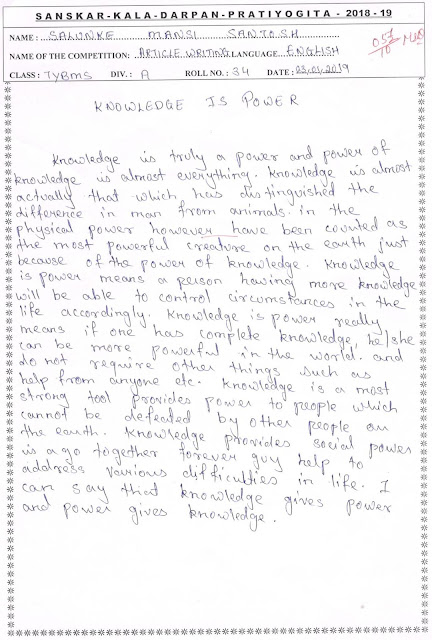 SANSKAR-KALA-DARPAN-PRATIYOGITA - 2018 - 19
NAME : SALUNKE MANSI SANTOSH
NAME OF THE COMPETITION: ARTICLE WRITING LANGUAGE ENGLISH
CLASS : TYBMS DIV. : A ROLL NO. : 34 DATE : 23/01/2019
KNOWLEDGE IS POWER
Knowledge is truly a power and power of
knowledge is almost everything. Knowledge is almost
actually that which has distinguished the
difference in man from animals. in the
physical power however have been counted as
the most powerful creature on the earth just
because of the power of knowledge. Knowledge
is power means a person having more knowledge
will be able to control circumstances in the
life accordingly. Knowledge is power really
means if one has complete knowledge, he/she
can be more powerful in the world. and
do not require other things such as
help from anyone etc. Knowledge is a most
strong tool provides power to people which
cannot be defeated by other people on
the earth. Knowledge provides social power
is a go together forever guy help to
address various difficulties in life. I
can say that knowledge gives power
and power gives knowledge.